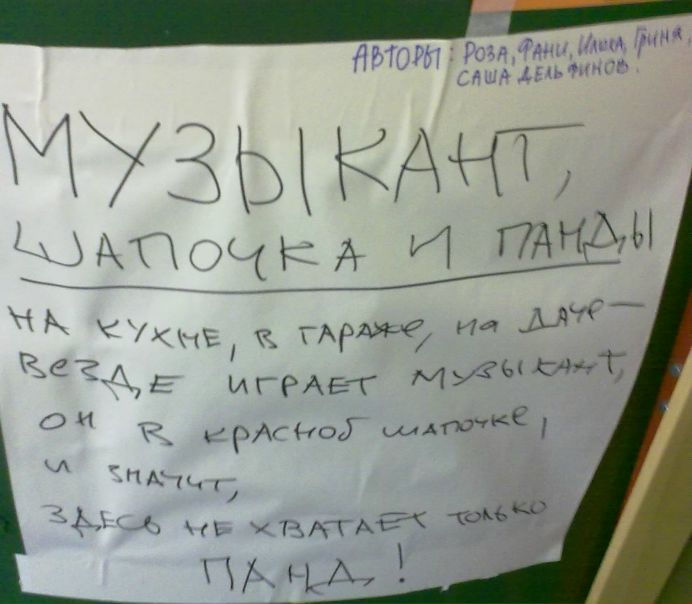 АВТОРЫ: РОЗА, ФАНИ, ИЛЮХА, ГРИНЯ,
САША ДЕЛЬФИНОВ.
МУЗЫКАНТ,
ШАПОЧКА И ПАНДЫ
НА КУХНЕ, В ГАРАЖЕ, НА ДАЧЕ—
ВЕЗДЕ ИГРАЕТ МУЗЫКАНТ,
ОН В КРАСНОЙ ШАПОЧКЕ,
И ЗНАЧИТ,
ЗДЕСЬ НЕ ХВАТАЕТ ТОЛЬКО
ПАНД!